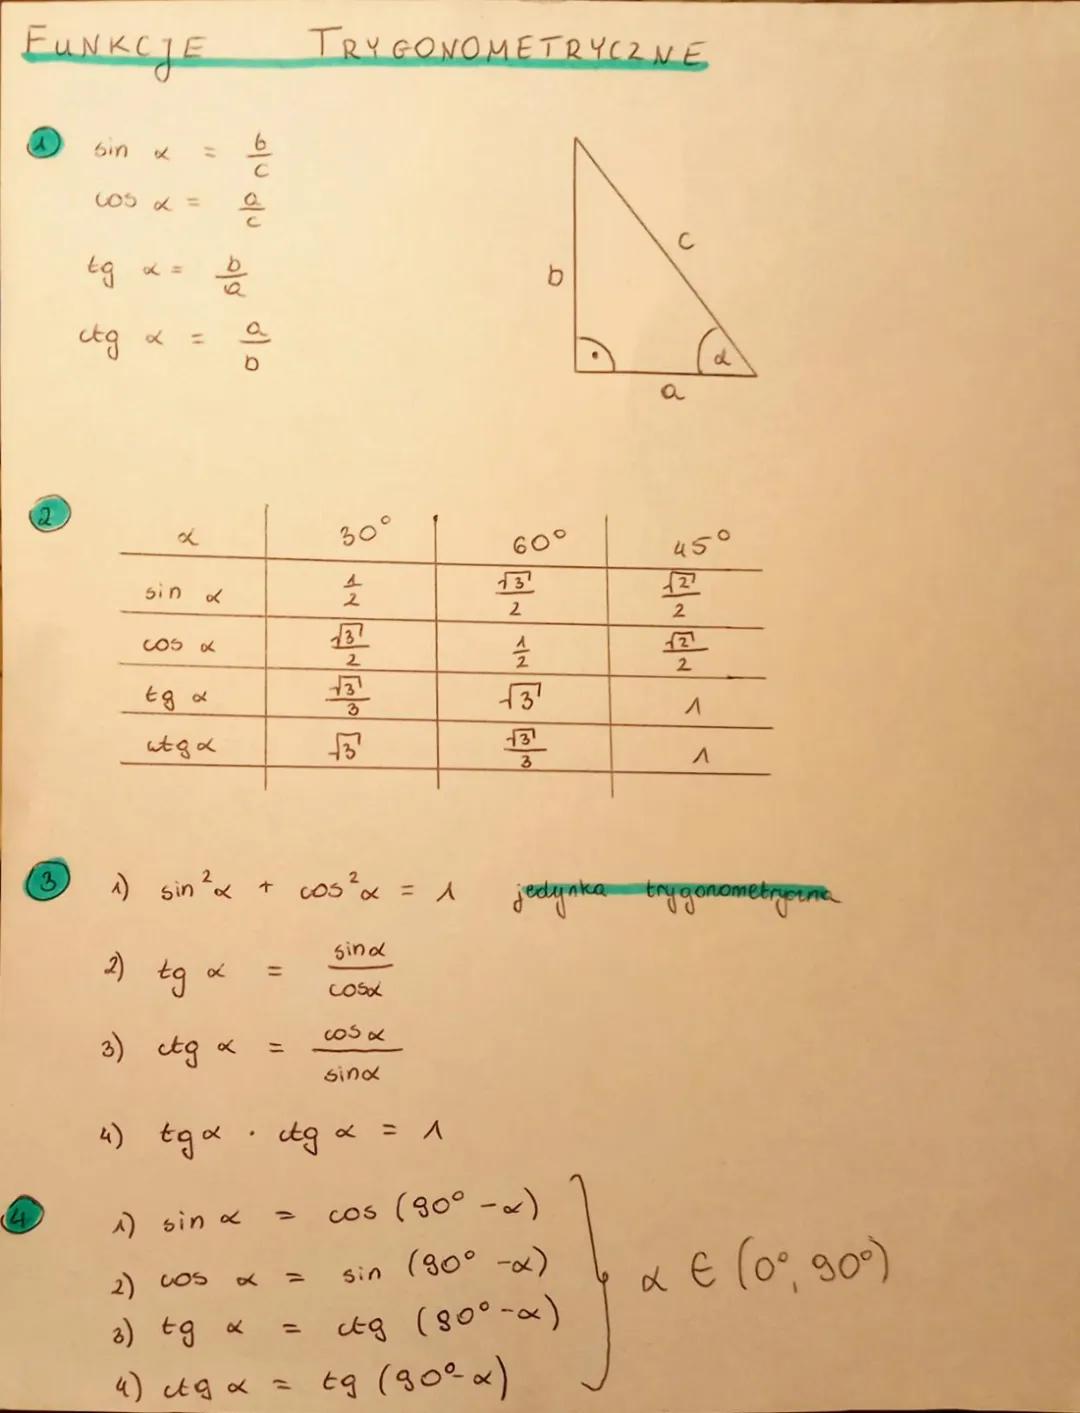 FUNKCJE TRYGONOMETRYCZNE
1 sin α = b/c
cos α = a/c
tg α = b/a
ctg α = a/b
b c a α
2
α 30° 60° 45°
sin α 1/2 √3/2 √2/2
cos α √3/2 1/2 √2/2
tg α √3/3 √3 1
ctg α √3 √3/3 1
3 1) sin²α + cos²α = 1 jedynka trygonometryczna
2) tg α = sinα/cosα
3) ctg α = cos α/sinα
4) tgα · ctg α = 1
4 1) sin α = cos (90° - α)
2) cos α = sin (90° - α)
3) tg α = ctg (90° - α)
4) ctg α = tg (90° - α)
α ∈ (0°, 90°)